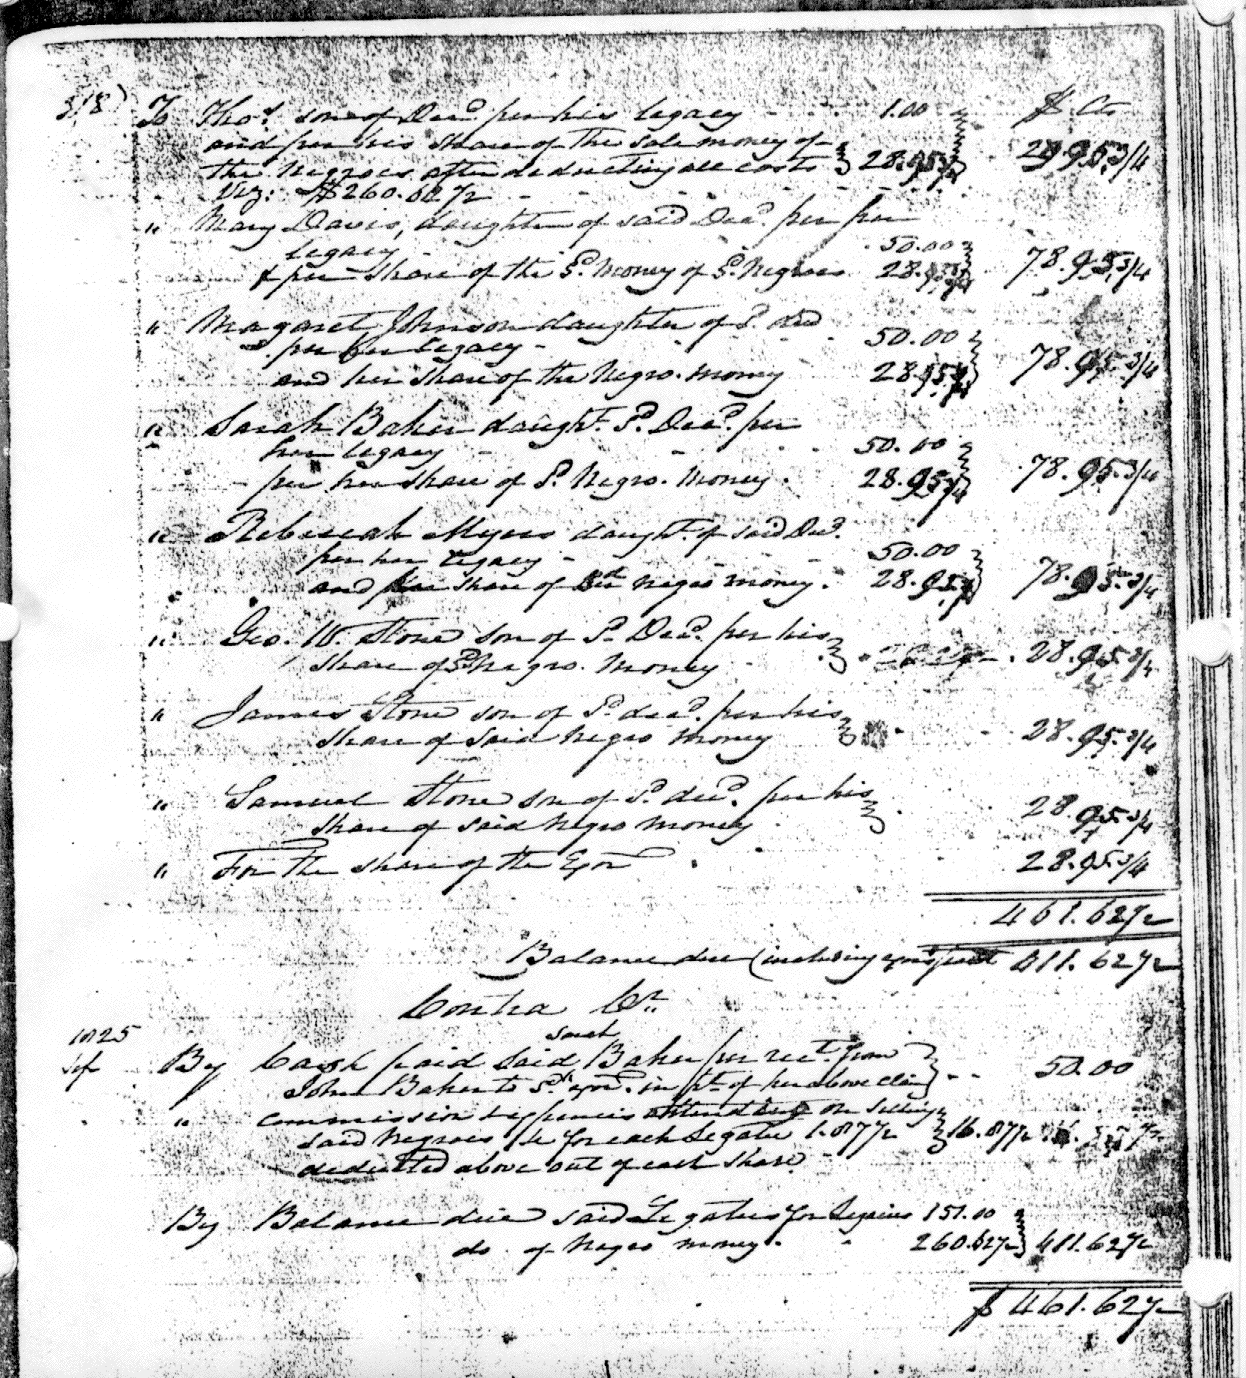 318)
$ Cts
To Thos. son of Decd. per his legacy - - - 1.00
and per his share of the sale money of
the Negroes after deducting all costs 28.95 3/4 29.95 3/4
Viz: $260.62 1/2
" Mary Davis, daughter of said Decd. per her
legacy - - 50.00
& per share of the Sd. money of Sd. Negroes 28.95 3/4 78.95 3/4
" Margaret Johnson daughter of Sd. decd
per her legacy - - - 50.00
and her share of the Negro money 28.95 3/4 78.95 3/4
" Sarah Baker daught. Sd. Decd. per
her legacy - - - 50.00
per her share of Sd. Negro. money. 28.95 3/4 78.95 3/4
" Rebeccah Myers daught. of said Decd.
per her legacy - - - 50.00
and her share of Negro money. 28.95 3/4 78.95 3/4
" Geo. W. Stone son of Sd. Decd. per his
share of Sd. Negro. money - 28.95 3/4
" James Stone son of Sd. decd. per his
share of said Negro money 28.95 3/4
" Samuel Stone son of Sd. decd. per his
share of said Negro money 28.95 3/4
" For the share of the Exor 28.95 3/4
461.62 1/2
Balance due (including 411.62 1/2
Contra Cr.
1825
Sarah
By Cash paid said Baker per rect. from
John Baker to Sd. exor. in pt. of her above claim - - 50.00
" commission & expences attending on selling
said Negroes for each Legatee 1.87 1/2 16.87 1/2
deducted above out of each share
By Balance due said Legatees for Legacies 151.00
do. of Negro money. - 260.62 1/2 411.62 1/2
$ 461.62 1/2